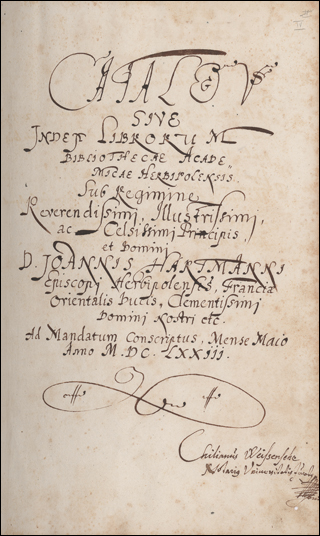 CATALOGVS
SIVE
INDEX LIBRORUM
BIBLIOTHECAE ACADE„
MICAE HERBIPOLENSIS
Sub Regimine,
Reverendissimi, Illustrissimi,
ac Celsissimi Principis,
et Domini
D. JOANNIS HARTMANNI
Episcopi Herbipolensis, Franciæ
Orientalis Ducis, Clementissimi
Domini Nostri etc.
Ad Mandatum Conscriptus, Mense Maio
Anno M. DC. LXXIII.
Chilianus Weissensehe
Notarius Universitatis